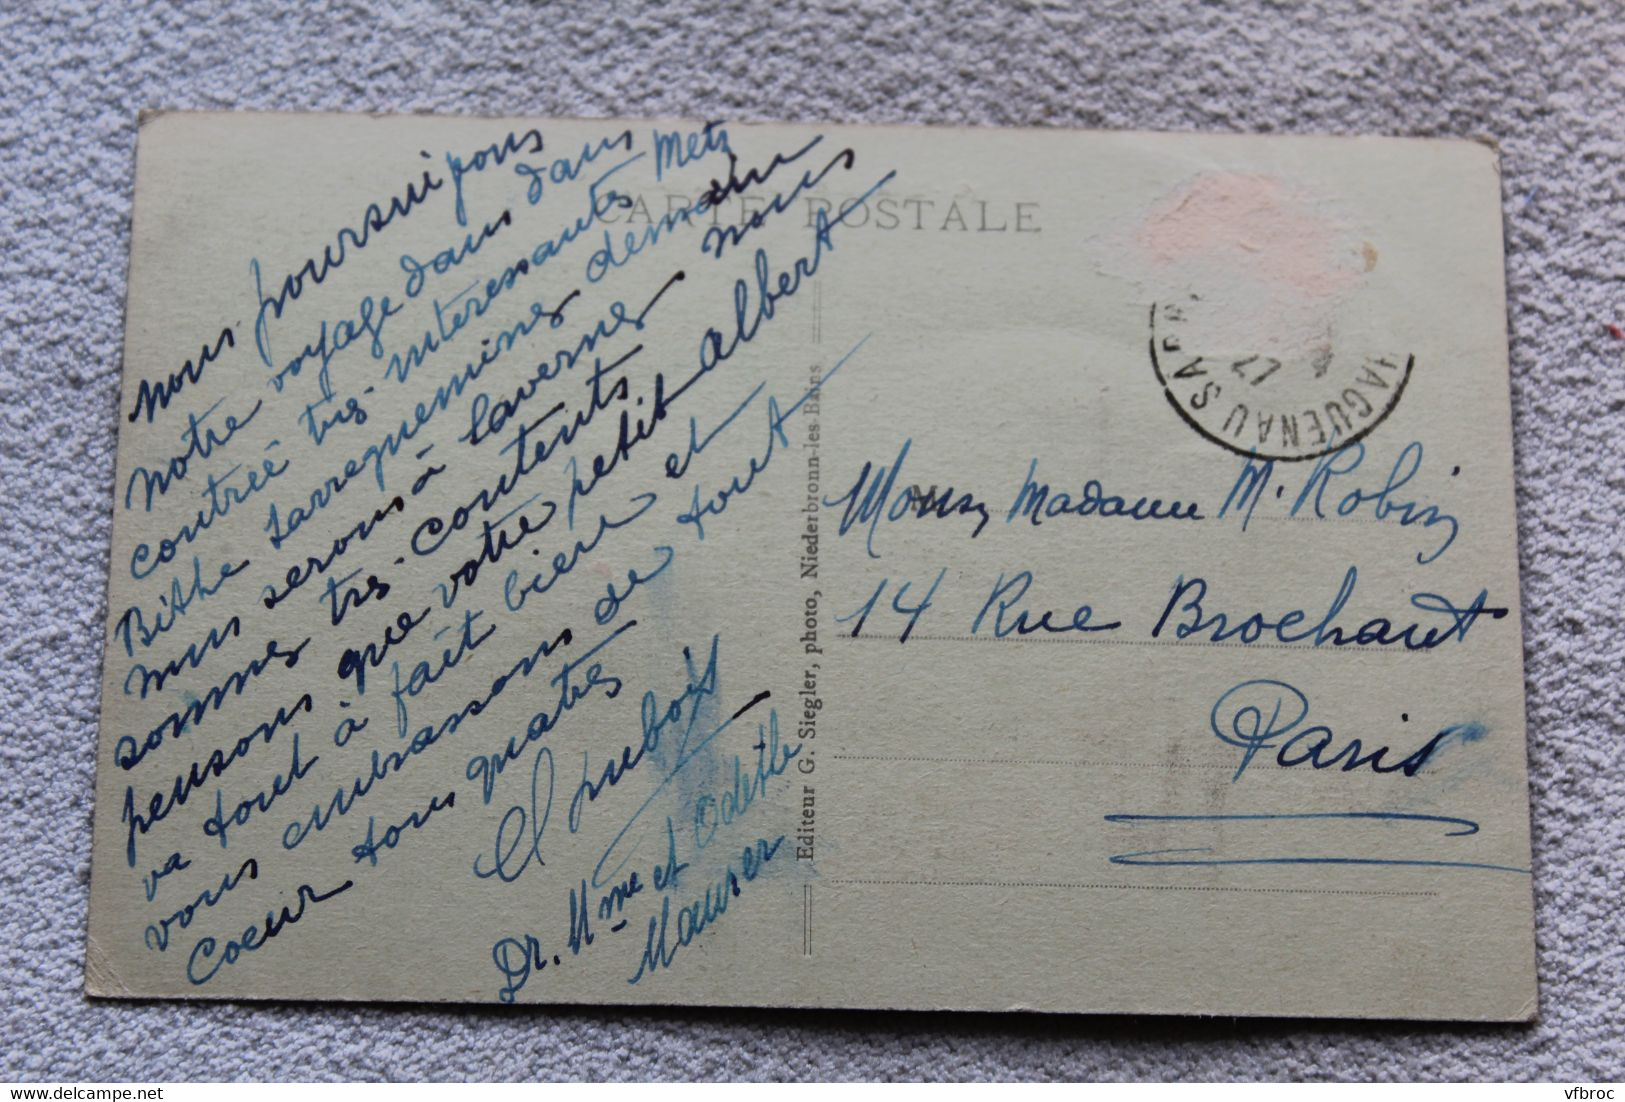 nous poursuivons
notre voyage dans dans
contreé trs. interessantes Metz
Bithe Sarreguemines demain
nous serons à Saverne nous
sommes trs. contents
pensons que votre petit Albert
va tout à fait bien et
vous embrassons de tout
coeur tous quatres
Dubois
Dr. Mme et Odette
Maurer
CARTE POSTALE
Editeur G. Siegler, photo, Niederbronn-les-Bains
HAGUENAU
17
Monsr Madame M. Robin
14 Rue Brochant
Paris
vfbroc